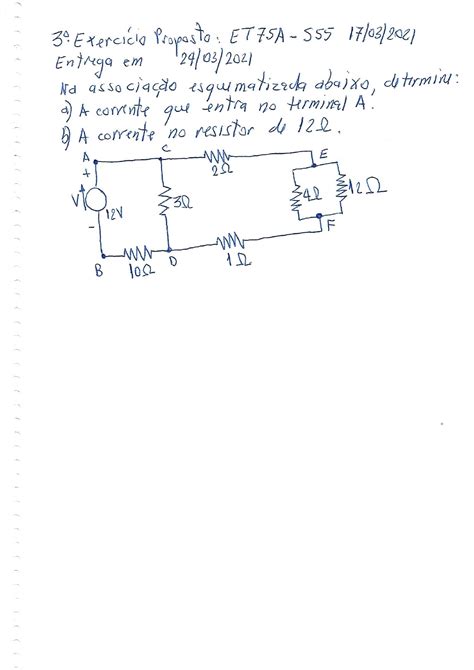 3º Exercício Proposto: ET75A - S55 17/03/2021
Entrega em 24/03/2021
Na associação esquematizada abaixo, determine:
a) A corrente que entra no terminal A.
b) A corrente no resistor de 12Ω.
A C 2Ω E
+ V 12V - 3Ω 4Ω 12Ω
B 10Ω D 1Ω F